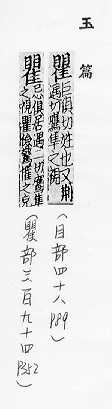 玉篇
瞿 巨俱切姓也又荆
遇切鷹隼之視
(目部四十八 P89)
瞿 忌俱居遇二切鷹隼
之視瞿驚之皃
(瞿部三百九十四 P352)